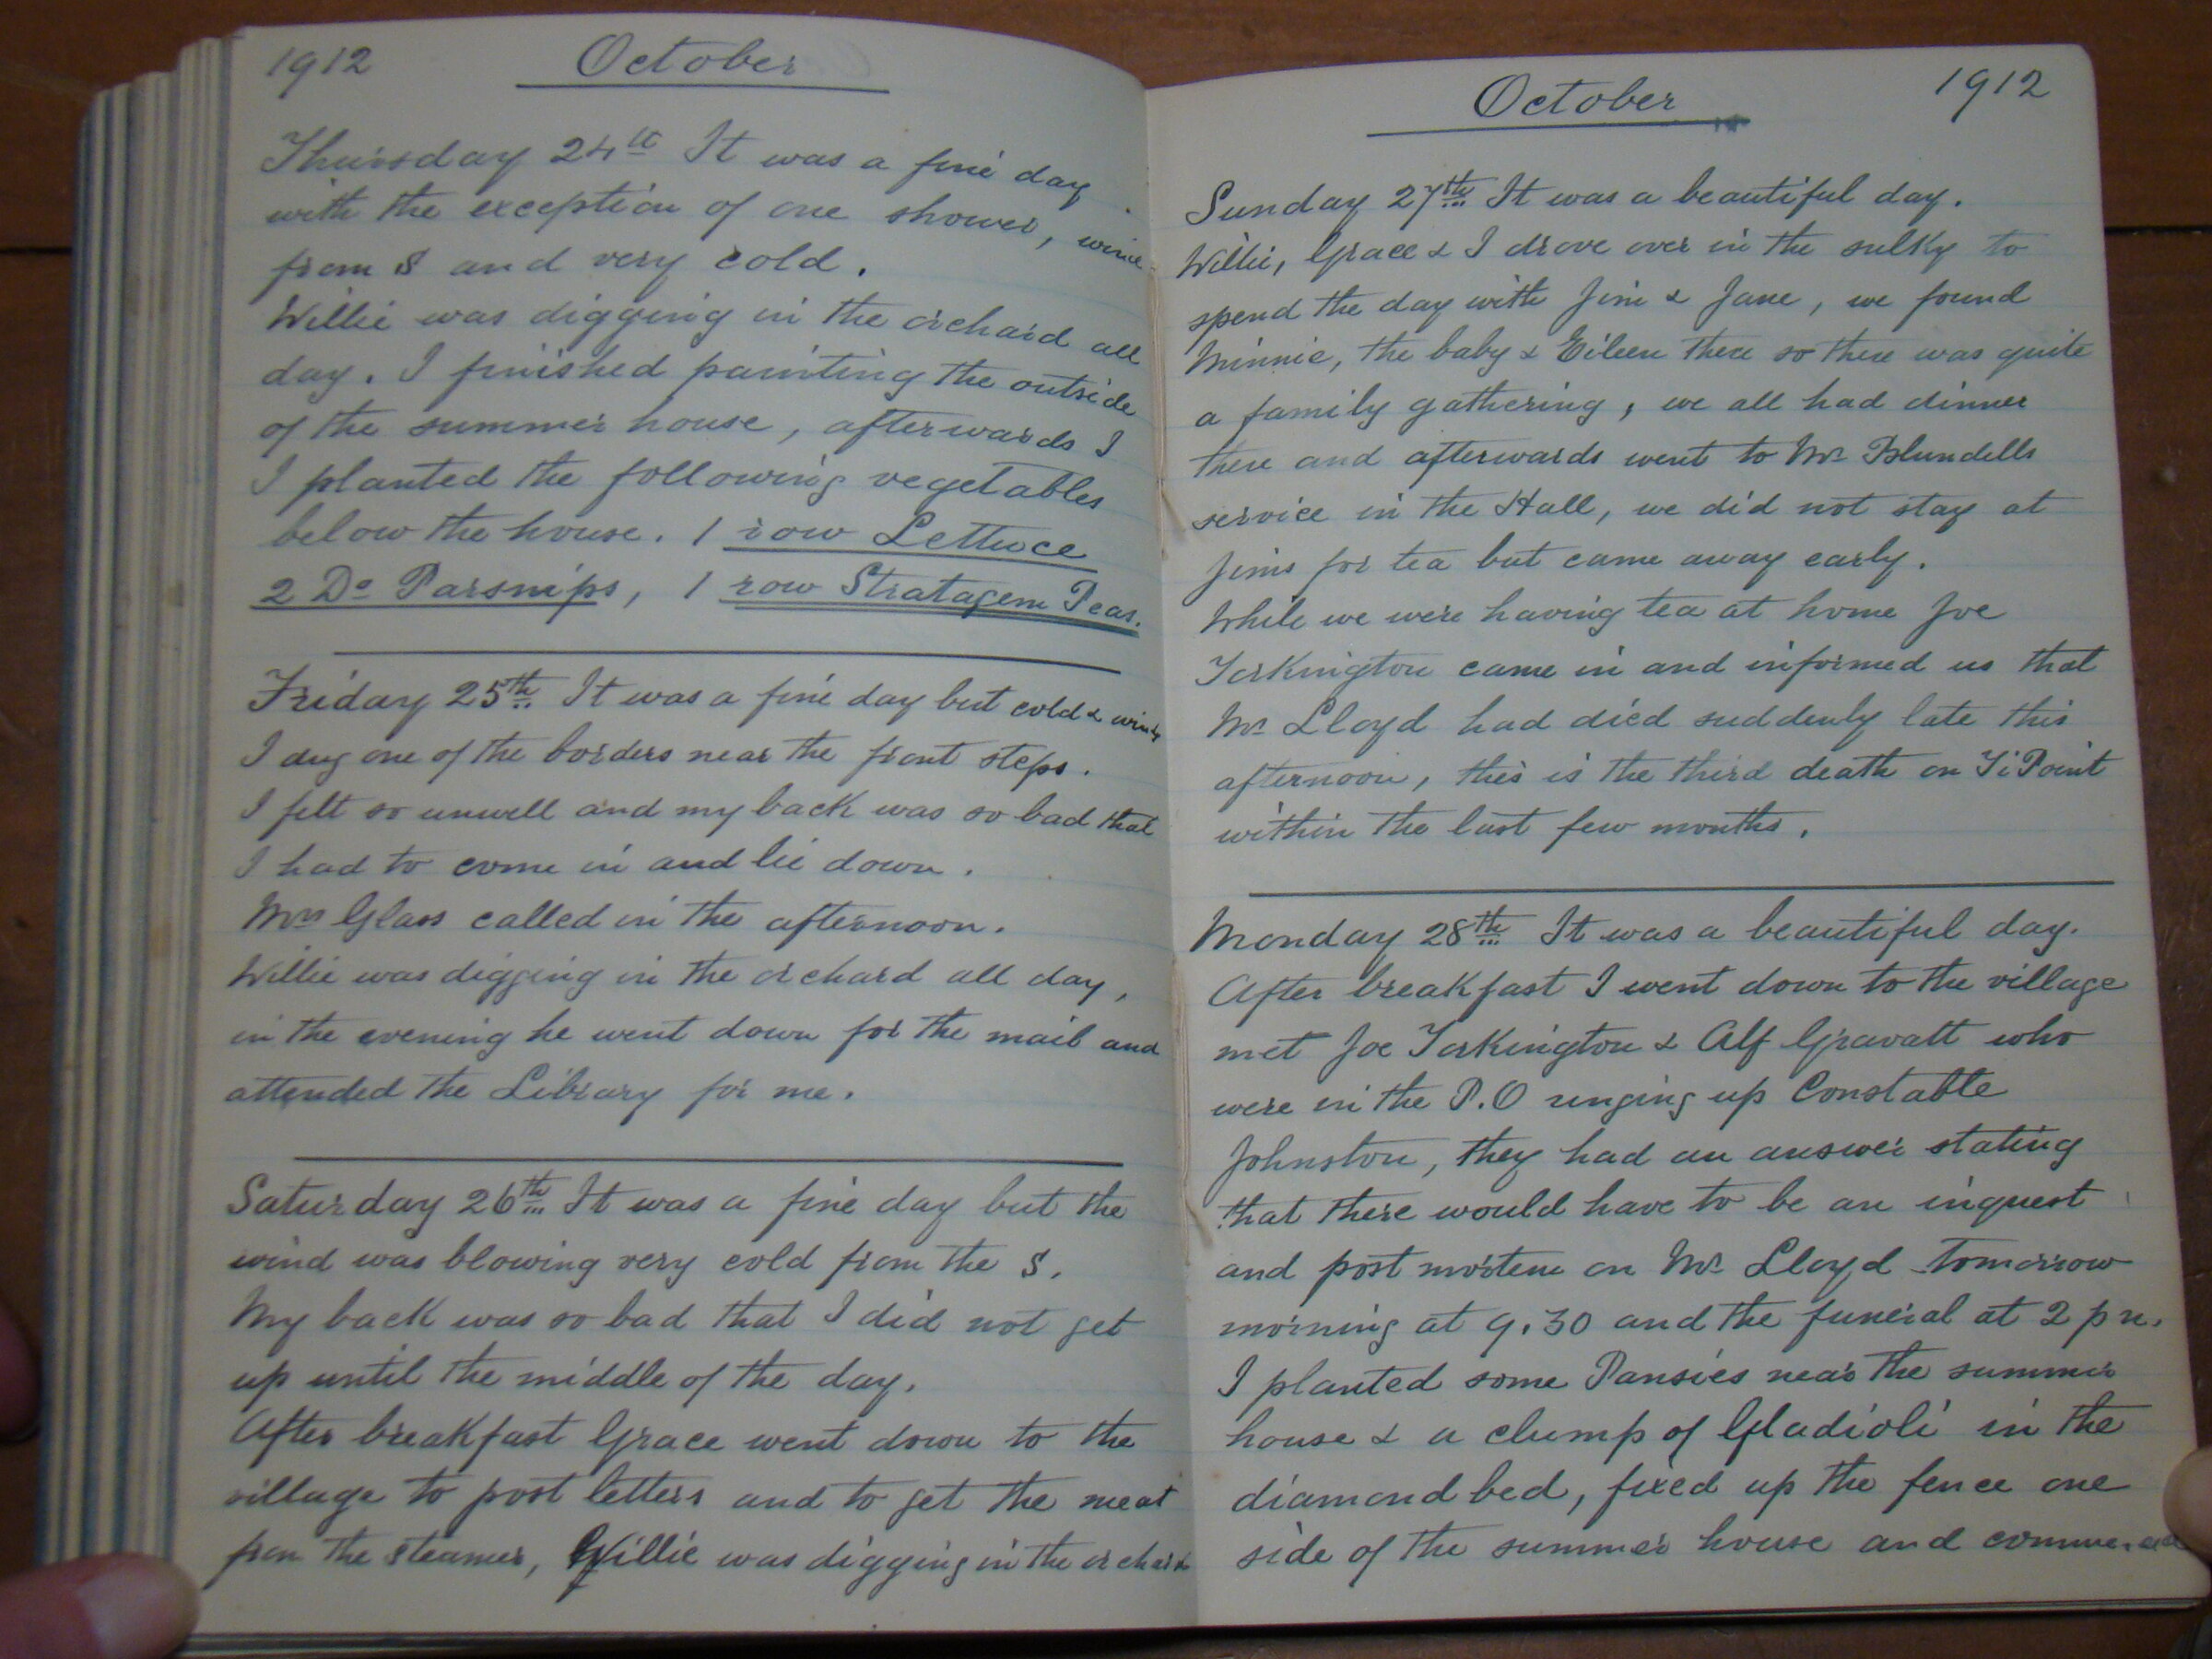 1912 October
Thursday 24th It was a fine day
with the exception of one shower, wind
from S and very cold.
Willie was digging in the orchard all
day. I finished painting the outside
of the summer house, afterwards I
I planted the following vegetables
below the house. 1 row Lettuce
2 Do Parsnips, 1 row Stratagem Peas.
Friday 25th It was a fine day but cold & windy
I dug one of the borders near the front steps.
I felt so unwell and my back was so bad that
I had to come in and lie down.
Mrs Glass called in the afternoon.
Willie was digging in the orchard all day,
in the evening he went down for the mail and
attended the Library for me.
Saturday 26th It was a fine day but the
wind was blowing very cold from the S.
My back was so bad that I did not get
up until the middle of the day.
After breakfast Grace went down to the
village to post letters and to get the meat
from the steamer, Willie was digging in the orchard
October 1912
Sunday 27th It was a beautiful day.
Willie, Grace & I drove over in the sulky to
spend the day with Jim & Jane, we found
Minnie, the baby & Eileen there so there was quite
a family gathering, we all had dinner
there and afterwards went to Mr Blundells
service in the Hall, we did not stay at
Jims for tea but came away early.
While we were having tea at home Joe
Torkington came in and informed us that
Mr Lloyd had died suddenly late this
afternoon, this is the third death on Ti Point
within the last few months.
Monday 28th It was a beautiful day.
After breakfast I went down to the village
met Joe Torkington & Alf Gravatt who
were in the P.O ringing up Constable
Johnston, they had an answer stating
that there would have to be an inquest
and post mortem on Mr Lloyd tomorrow
morning at 9.30 and the funeral at 2 p m.
I planted some Pansies near the summer
house & a clump of Gladioli in the
diamond bed, fixed up the fence one
side of the summer house and commenced